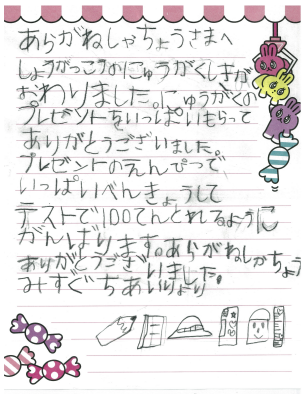 あらがねしゃちょうさまへ
しょうがっこうのにゅうがくしきが
おわりました。にゅうがくの
プレゼントをいっぱいもらって
ありがとうございました。
プレゼントのえんぴつで
いっぱいべんきょうして
テストで100てんとれるように
がんばります。あらがねしゃちょう
ありがとうございました。
みずぐちあいりより